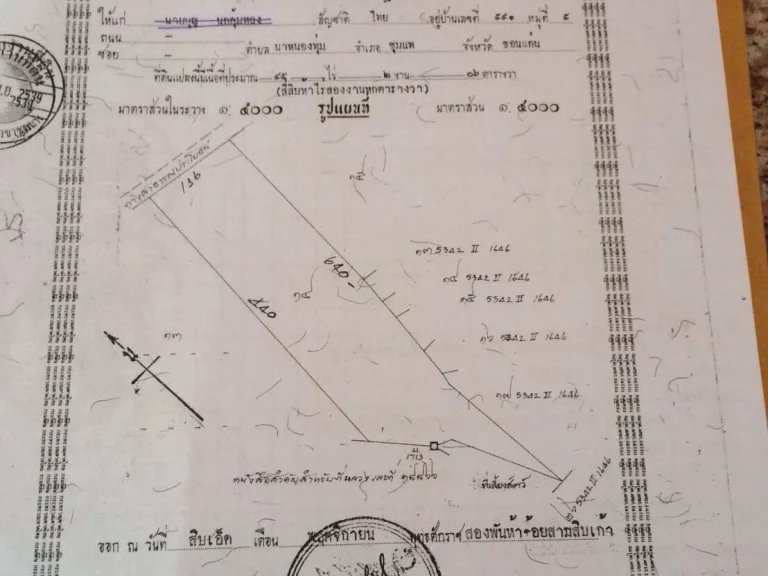 ให้แก่ นายบุญ นกคุ้มทอง สัญชาติ ไทย อยู่บ้านเลขที่ ๕๕๑ หมู่ที่ ๕
ถนน –
ซอย – ตำบล นาหนองทุ่ม อำเภอ ชุมแพ จังหวัด ขอนแก่น
ที่ดินแปลงนี้มีเนื้อที่ประมาณ ๔๕ ไร่ ๒ งาน ๐๖ ตารางวา
(สี่สิบห้าไร่สองงานหกตารางวา)
มาตราส่วนในระวาง ๑: ๕๐๐๐ รูปแผนที่ มาตราส่วน ๑: ๕๐๐๐
2539
ทางสาธารณประโยชน์
136
640
440
๑๓ 5342 II 1646
๑๔ 5342 II 1646
๑๕ 5342 II 1646
๑๖ 5342 II 1646
๑๗ 5342 II 1646
๑๔
๑๓
ที่เลี้ยงสัตว์
5342 II 1646
ออก ณ วันที่ สิบเอ็ด เดือน พฤศจิกายน พุทธศักราช สองพันห้าร้อยสามสิบเก้า